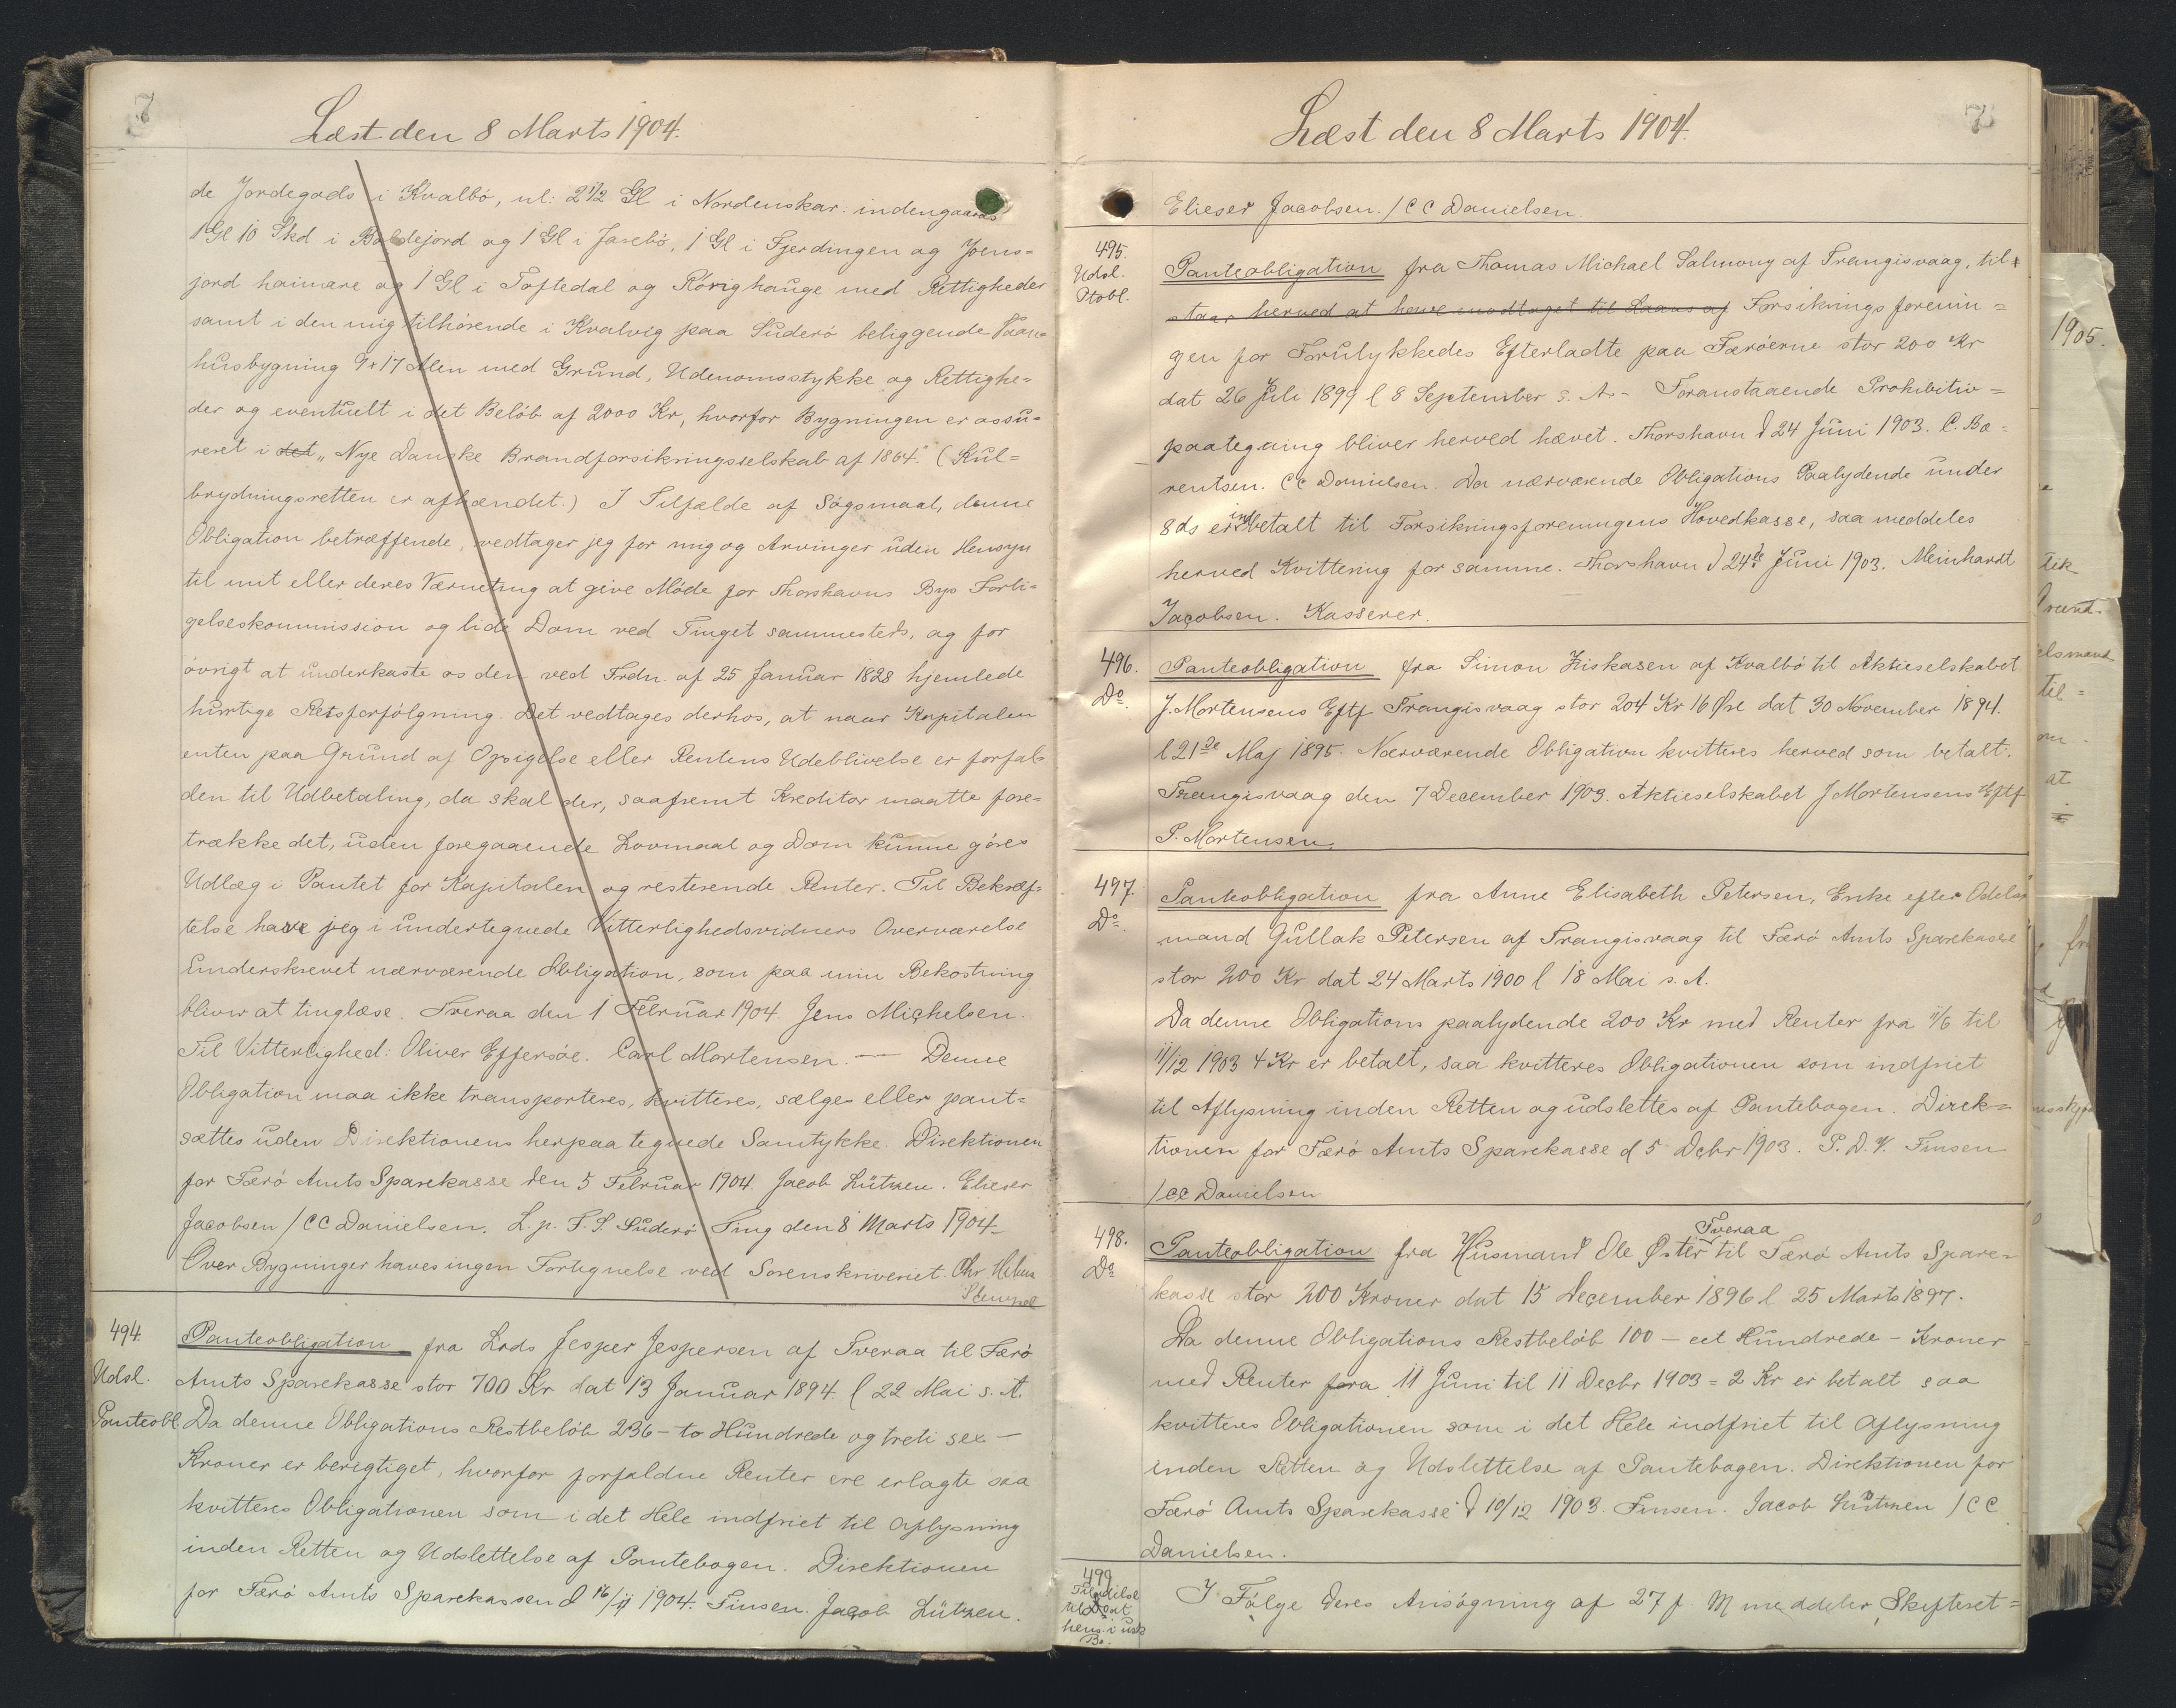 7
Læst den 8 Marts 1904.
de Jordegods i Kvalbö, nl: 2 1/2 Gl i Nordenskar: indengaards
1 Gl 10 Skd i Böldejord og 1 Gl i Jarebö, 1 Gl i Fjerdingen og Joens=
jord haimare og 1 Gl i Toftedal og Rörighauge med Rettigheder
samt i den mig tilhörende i Kvalvig paa Suderö beliggende Vaane
husbygning 9 + 17 Alen med Grund, Udenomsstykke og Rettighe=
der og eventuelt i det Belöb af 2000 Kr, hvorfor Bygningen er assu=
reret i det „Nye Danske Brandforsikringsselskab af 1864." (Kul=
brydningsretten er afhændet.) I Tilfælde af Sögsmaal, denne
Obligation betræffende, vedtager jeg for mig og Arvinger uden Hensyn
til mit eller deres Værneting at give Möde for Thorshavns Bys Forli=
gelseskommission og lide Dom ved Tinget sammesteds, og for
övrigt at underkaste os den ved Frdn. af 25 Januar 1828 hjemlede
hurtige Retsforfölgning. Det vedtages derhos, at naar Kapitalen
enten paa Grund af Opsigelse eller Rentens Udeblivelse er forfal=
den til Udbetaling, da skal der, saafremt Kreditor maatte fore=
trække det, uden foregaaende Lovmaal og Dom kunne göres
Udlæg i Pantet for Kapitalen og resterende Renter. Til Bekræf=
telse have jeg i undertegnede Vitterlighedsvidners Overværelse
underskrevet nærværende Obligation, som paa min Bekostning
bliver at tinglæse. Tveraa den 1 Februar 1904. Jens Michelsen.
Til Vitterlighed: Oliver Effersöe. Carl Mortensen. — Denne
Obligation maa ikke transporteres, kvitteres, sælges eller pant=
sættes uden Direktionens herpaa tegnede Samtykke. Direktionen
for Færö Amts Sparekasse den 5 Februar 1904. Jacob Lützen. Elieser
Jacobsen / CC Danielsen. L. p. F. S. Suderö Ting den 8 Marts 1904
Over Bygninger haves ingen Fortegnelse ved Sorenskriveriet.
Stempel
494. Panteobligation fra Lods Jesper Jespersen af Tveraa til Færö
Udsl. Amts Sparekasse stor 700 Kr dat 13 Januar 1894. l 22 Mai s. A.
Panteobl. Da denne Obligations Restbelöb 236 – to Hundrede og treti sex —
Kroner er berigtiget, hvorfor forfaldne Renter ere erlagte saa
kvitteres Obligationen som i det Hele indfriet til Aflysning
inden Retten og Udslettelse af Pantebogen. Direktionen
for Færö Amts Sparekassen d 1904. Finsen. Jacob Lützen.
7
Læst den 8 Marts 1904.
Elieser Jacobsen. / CC Danielsen.
495. Panteobligation fra Thomas Michael Salmony af Trangisvaag, til
Udsl. staar herved at have modtaget til Laans af Forsikringsforenin=
Ptobl.
gen for Forulykkedes Efterladte paa Færöerne stor 200 Kr
dat 26 Juli 1899 l 8 September s. A. – Foranstaaende Prohibitiv=
paategning bliver herved hævet. Thorshavn d 24 Juni 1903. C. Bæ=
rentsen. CC Danielsen. Da nærværende Obligations Paalydende under
8 ds er indbetalt til Forsikringsforeningens Hovedkasse, saa meddeles
herved Kvittering for samme. Thorshavn d 24de Juni 1903. Meinhardt
Jacobsen. Kasserer.
496. Panteobligation fra Simon Kiskasen af Kvalbö til Aktieselskabet
Do. J. Mortensens Eftf Trangisvaag stor 204 Kr 16 Øre dat 30 November 1894.
l 21de Maj 1895. Nærværende Obligation kvitteres herved som betalt.
Trangisvaag den 7 December 1903. Aktieselskabet J Mortensens Eftf
P. Mortensen.
497. Panteobligation fra Anne Elisabeth Petersen, Enke efter Odels
Do. mand Gullak Petersen af Trangisvaag til Færö Amts Sparekasse
stor 200 Kr dat 24 Marts 1900 l 18 Mai s. A.
Da denne Obligations paalydende 200 Kr med Renter fra 11/6 til
11/12 1903 4 Kr er betalt, saa kvitteres Obligationen som indfriet
til Aflysning inden Retten og udslettes af Pantebogen. Direk=
tionen for Færö Amts Sparekasse d 5 Dcbr 1903. P. D. V. Finsen
/ CC Danielsen
498. Panteobligation fra Husmand Ole Øster Tveraa til Færö Amts Spare=
Do. kasse stor 200 Kroner dat 15 December 1896 l 25 Marts 1897.
Da denne Obligations Restbelöb 100 – eet Hundrede – Kroner
med Renter fra 11 Juni til 11 Decbr 1903 = 2 Kr er betalt saa
kvitteres Obligationen som i det Hele indfriet til Aflysning
inden Retten og Udslettelse af Pantebogen. Direktionen for
Færö Amts Sparekasse d 10/12 1903. Finsen. Jacob Lützen / CC
Danielsen.
499 I Fölge Deres Ansögning af 27 f. M meddeler Skifteret=
1905.